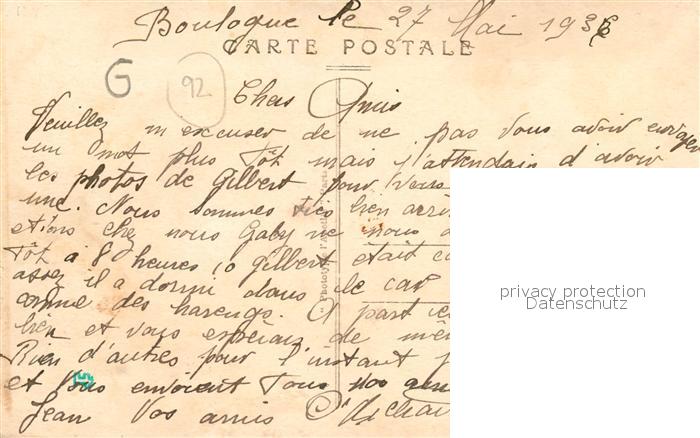 Boulogne le 27 Mai 193
CARTE POSTALE
G
92
Chers Amis
Veuillez m excuser de ne pas vous avoir
un mot plus tôt mais j'attendais d'avoir
les photos de Gilbert pour
une. Nous sommes très bien
etions chez nous Gaby ne nous
tôt à 8 heures Gilbert était
assez il a dormi dans le car
comme des harengs. A part
bien et vous espérais de
Rien d'autres pour l'instant
et vous envoient tous nos
Jean Vos amis
privacy protection
Datenschutz